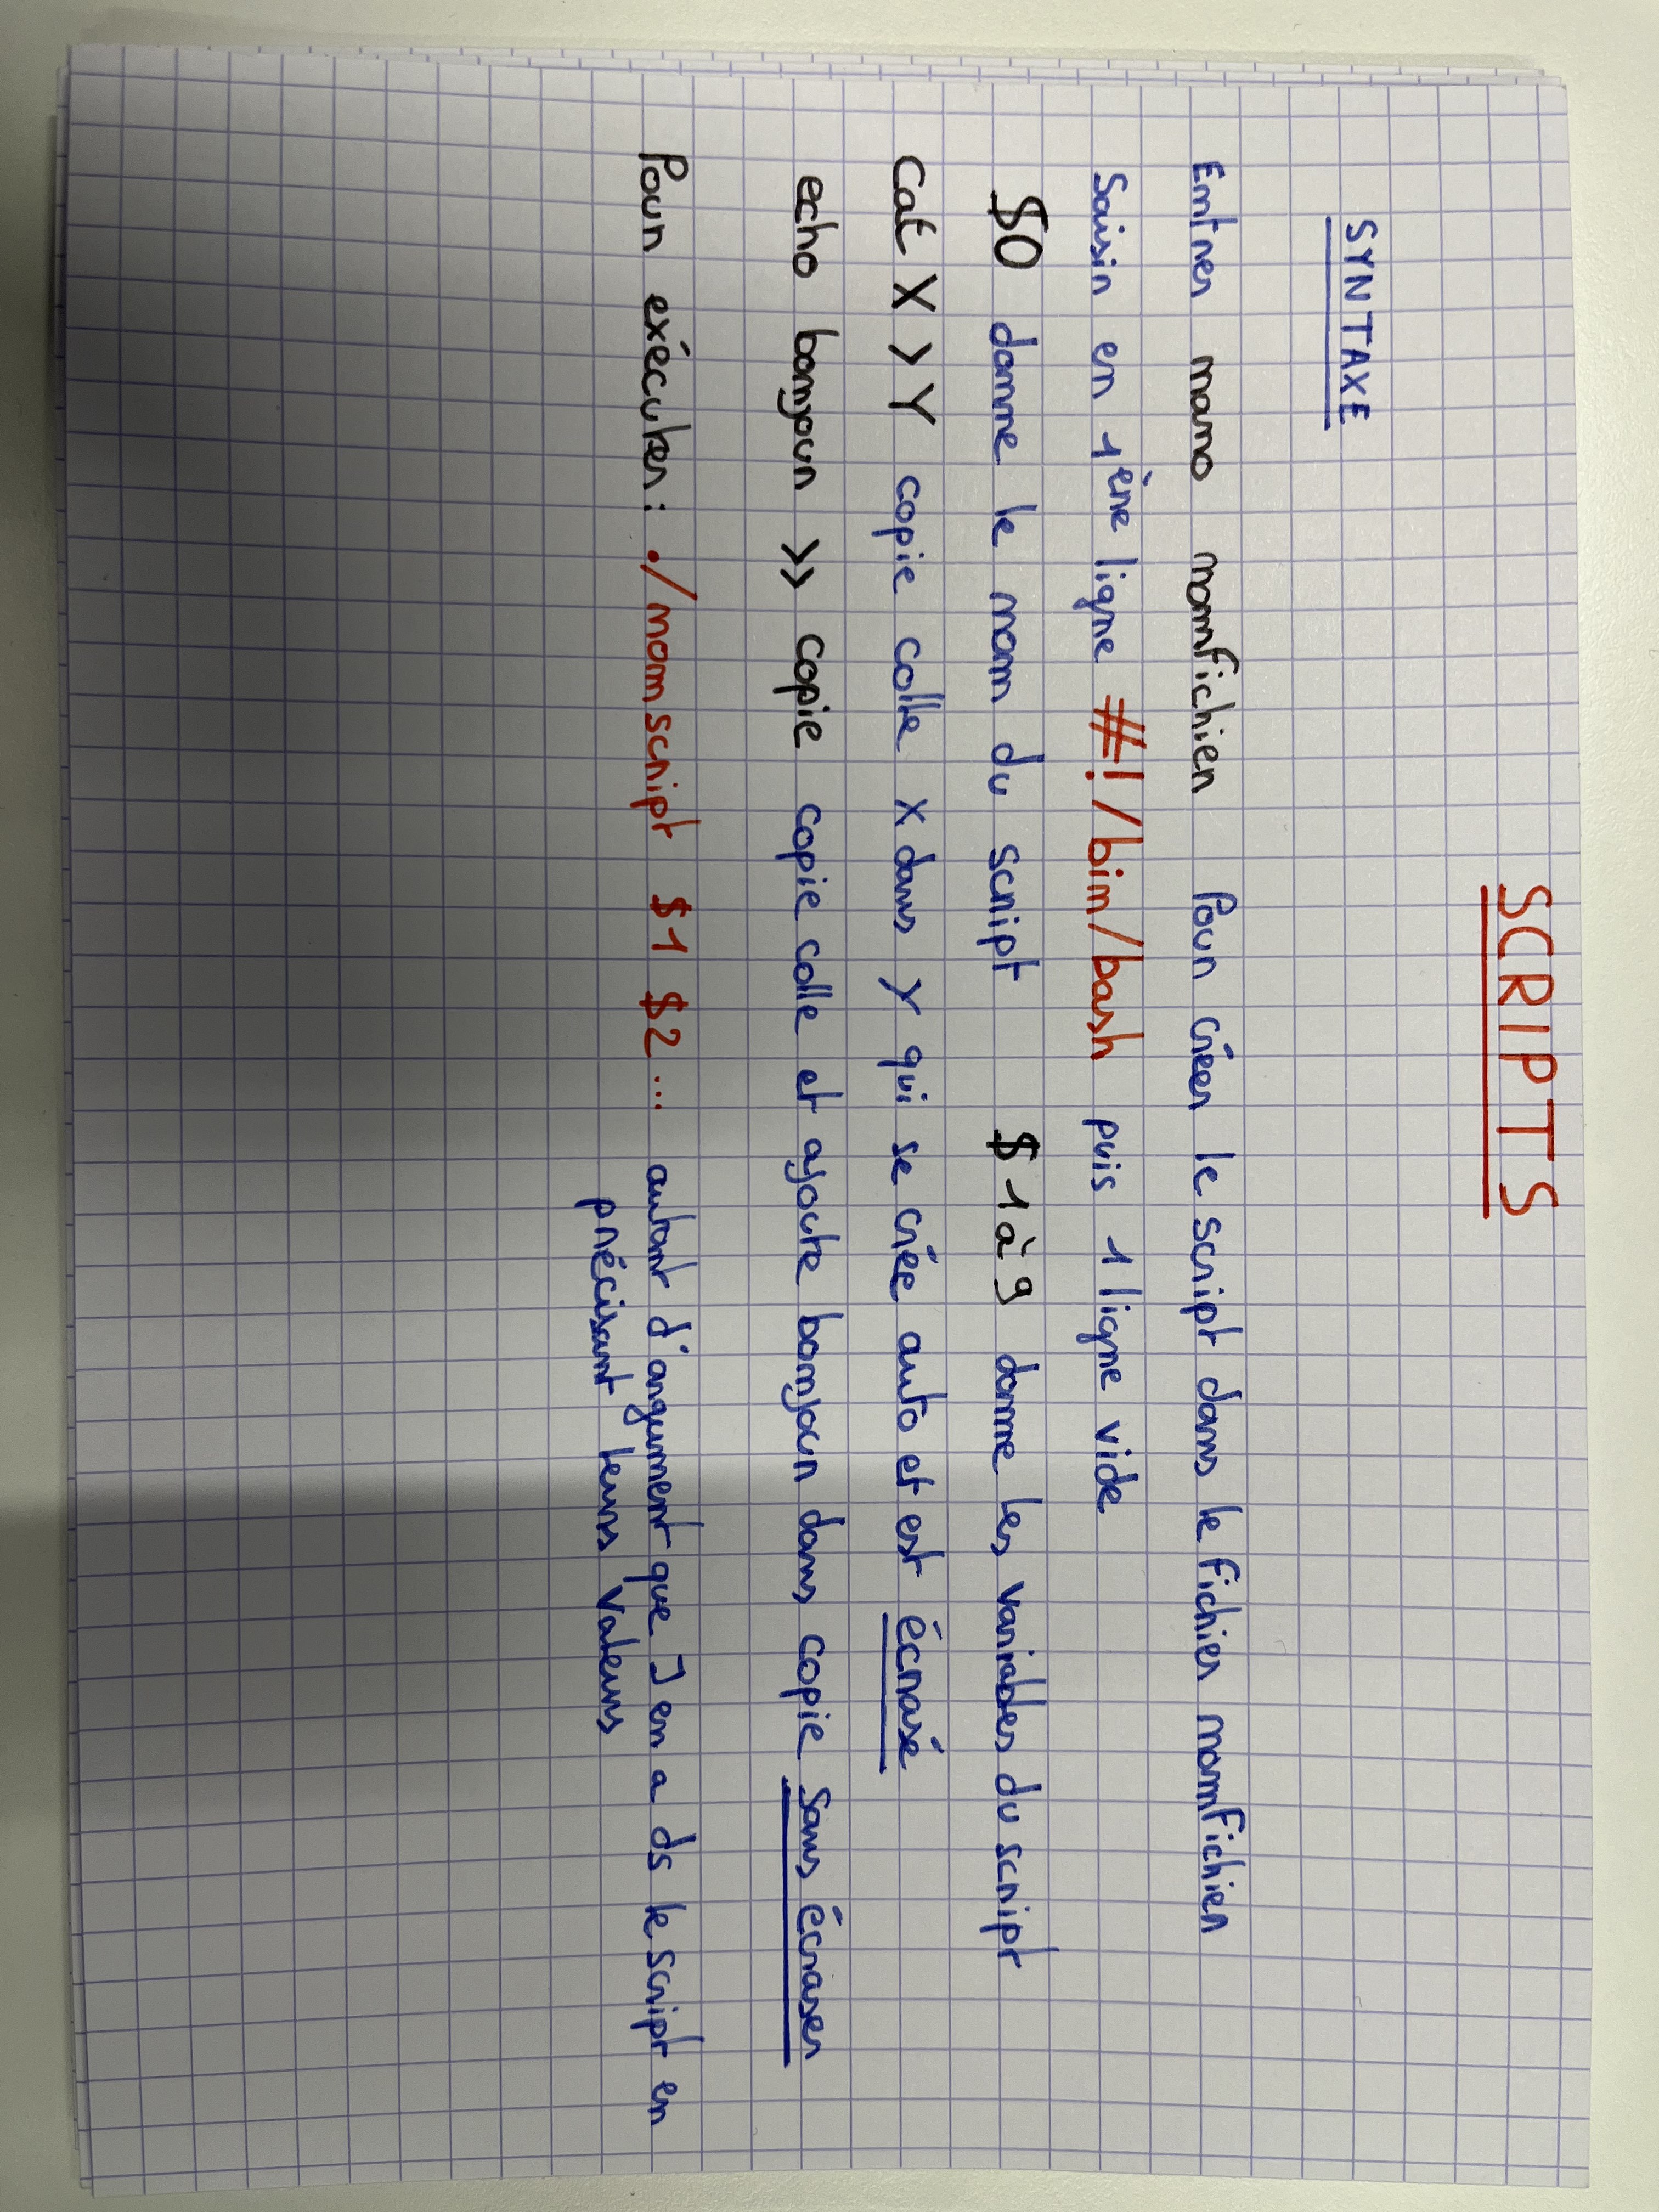 SCRIPTS
SYNTAXE
Entrer nano nomfichier Pour créer le script dans le fichier nomfichier
Saisir en 1ère ligne #!/bin/bash puis 1 ligne vide
$0 donne le nom du script $1 à 9 donne les variables du script
cat X > Y copie colle X dans Y qui se crée auto et est écrasé
echo bonjour >> copie copie colle et ajoute bonjour dans copie sans écraser
Pour exécuter : ./nomscript $1 $2 ... autant d'argument que J en a ds le script en
précisant leurs valeurs